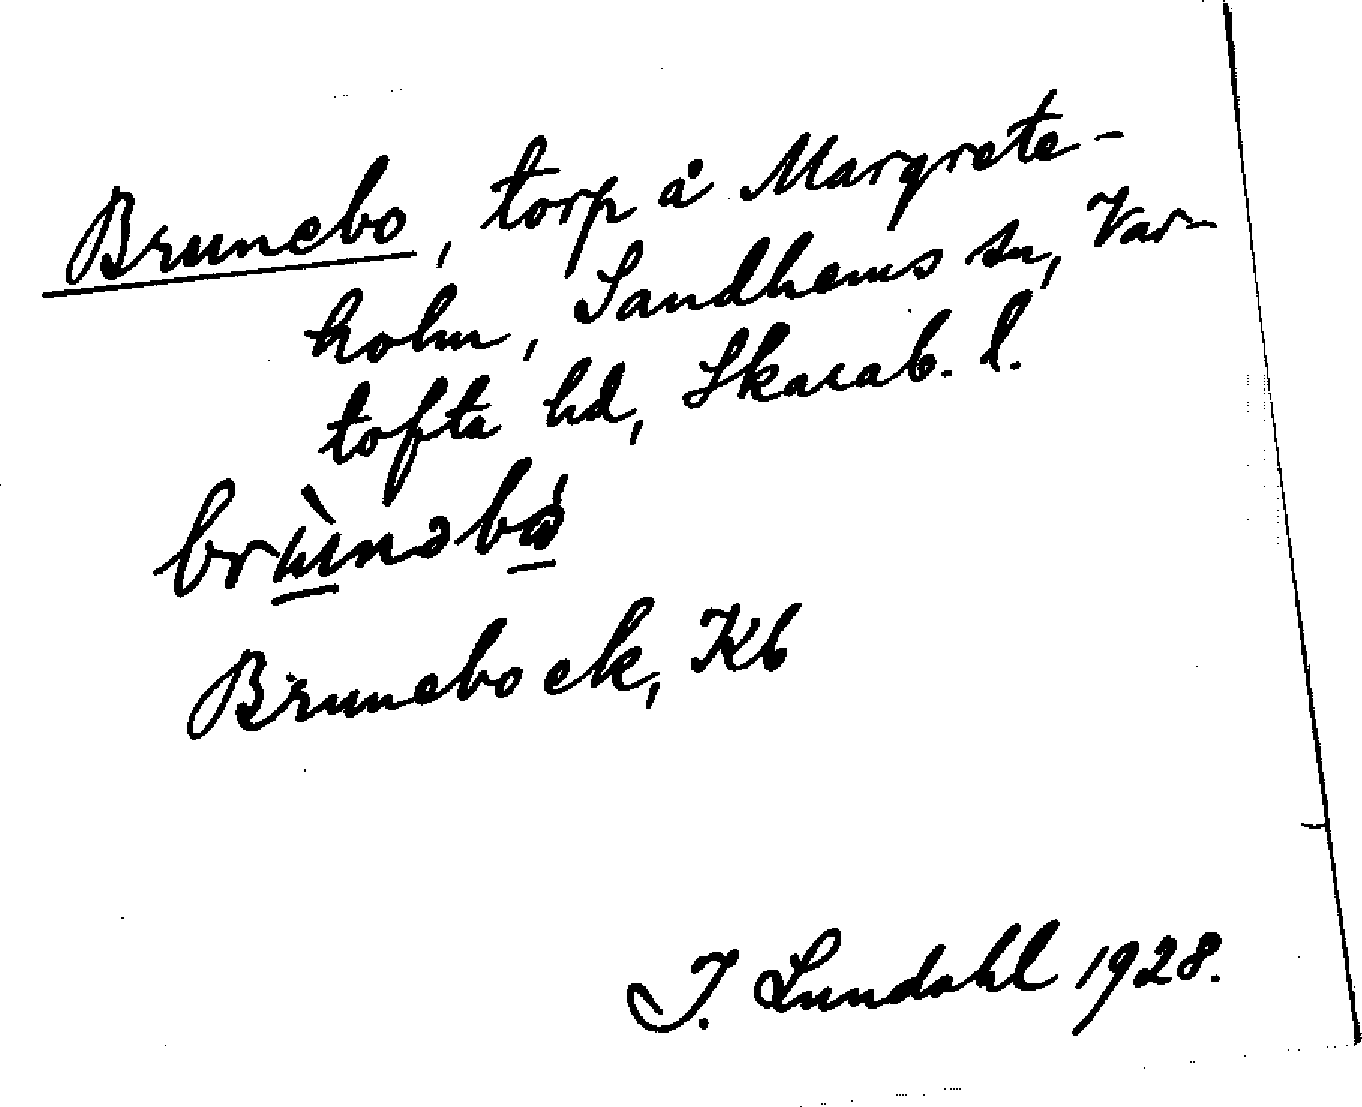 Brunebo, torp å Margrete-
holm, Sandhems sn, Var-
tofta hd, Skarab. l.
brùnəbó
Brunebo ek, Kb
I. Lundahl 1928.